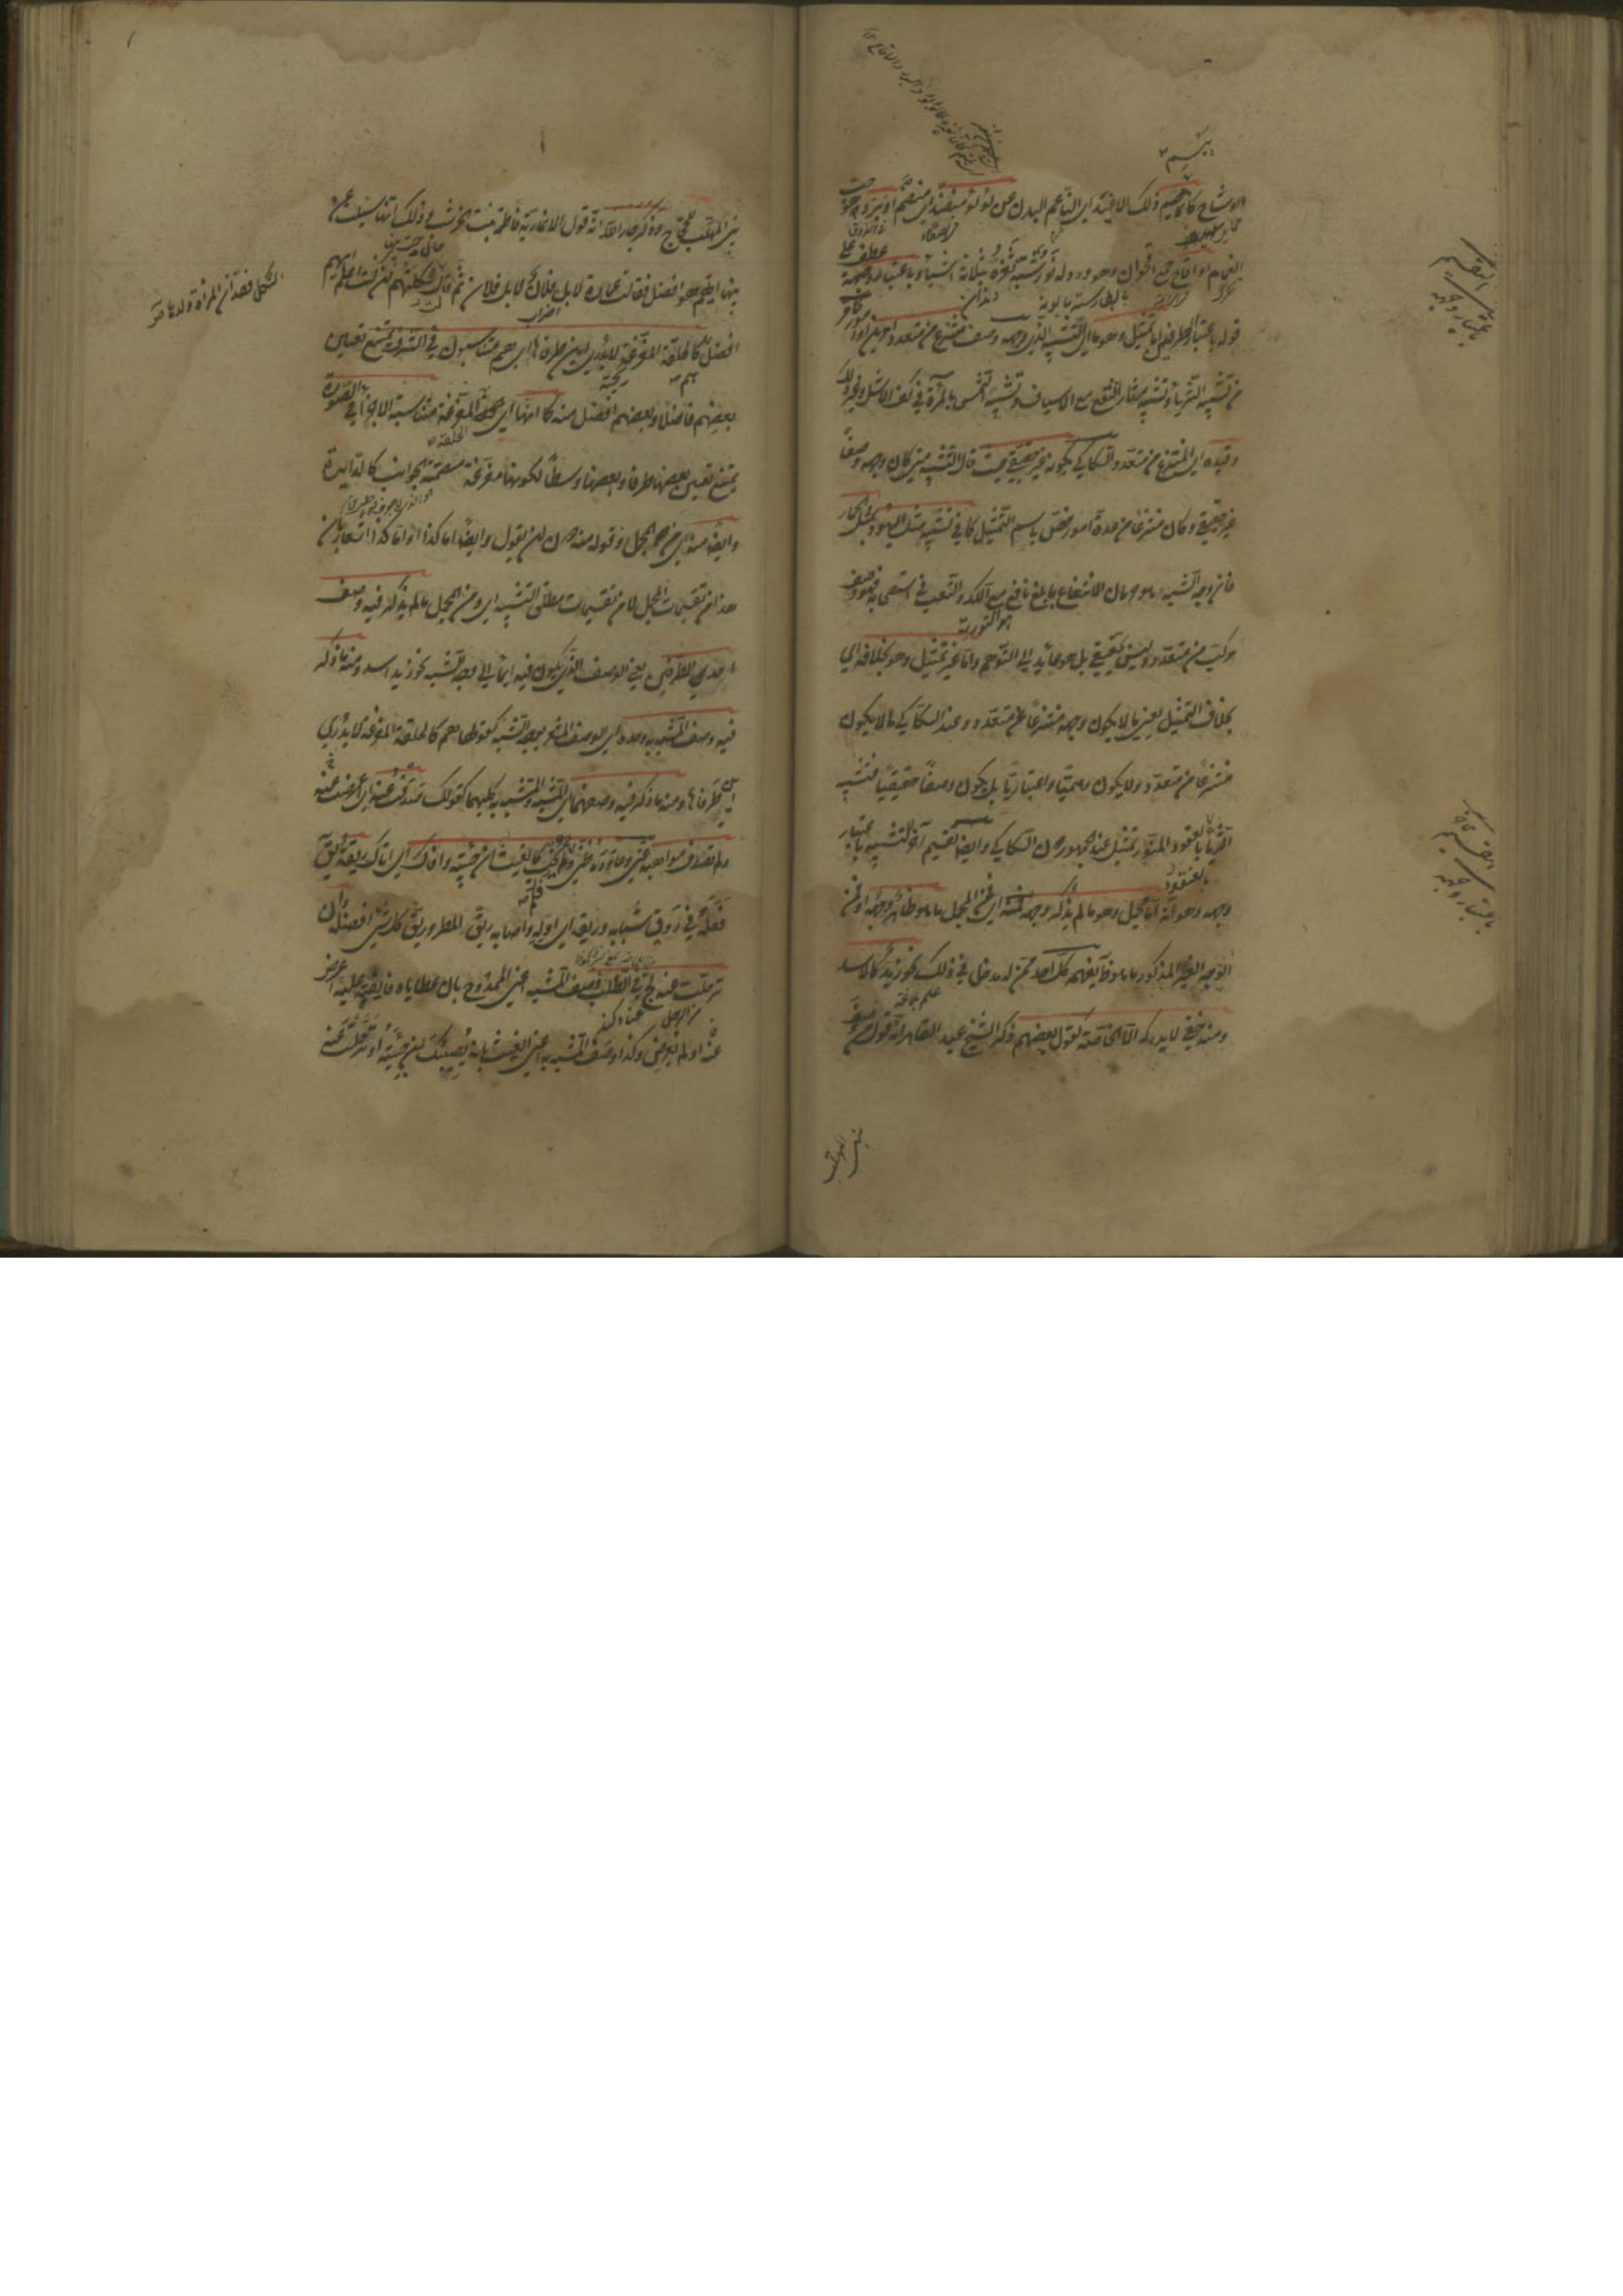 الوشاح كانما يبسم ذلك الاغيد اى الناعم البدن عن لؤلؤ منضد اى منظم او برد وهو حب
الغمام او اقاح جمع اقحوان وهو ورد له نور شبه ثغره بثلثة اشياء وباعتبار وجهه عطف على
قوله باعتبار الطرفين اما تمثيل وهو ما اى التشبيه الذى وجهه وصف منتزع من متعدد امرين او امور كما مر
من تشبيه الثريا وتشبيه مثار النقع مع الاسياف وتشبيه الشمس بالمرآة فى كف الاشل وغير ذلك
وقيده اى المنتزع من متعدد السكاكى بكونه غير حقيقى حيث قال التشبيه متى كان وجهه وصفا
غير حقيقى وكان منتزعا من عدة امور خص باسم التمثيل كما فى تشبيه مثل اليهود بمثل الحمار
فان وجه الشبه هو حرمان الانتفاع بابلغ نافع مع الكد والتعب فى استصحابه فهو وصف
مركب من متعدد وليس بحقيقى بل هو عائد الى التوهم واما غير تمثيل وهو بخلافه اى
بخلاف التمثيل يعنى ما لا يكون وجهه منتزعا من متعدد وعند السكاكى ما لا يكون
منتزعا من متعدد ولا يكون وهميا واعتباريا بل يكون وصفا حقيقيا فتشبيه
الثريا بالعنقود المنور تمثيل عند الجمهور دون السكاكى وايضا تقسيم آخر للتشبيه باعتبار
وجهه وهو انه اما مجمل وهو ما لم يذكر وجهه فمنه اى فمن المجمل ما هو ظاهر وجهه او فمن
الوجه الغير المذكور ما هو ظاهر يفهمه كل احد ممن له مدخل فى ذلك نحو زيد كالاسد
ومنه خفى لا يدركه الا الخاصة كقول بعضهم ذكر الشيخ عبد القاهر انه قول من وصف
بنى المهلب
بنى المهلب للحجاج وذكر جار الله انه قول الانمارية فاطمة بنت الخرشب وذلك انها سئلت عن
بنيها ايهم افضل فقالت عمارة لا بل فلان لا بل فلان ثم قالت ثكلتهم ان كنت اعلم ايهم
افضل هم كالحلقة المفرغة لا يدرى اين طرفاها اى هم متناسبون فى الشرف يمتنع تعيين
بعضهم فاضلا وبعضهم افضل منه كما انها اى الحلقة المفرغة متناسبة الاجزاء فى الصورة
يمتنع تعيين بعضها طرفا وبعضها وسطا لكونها مفرغة مصمتة الجوانب كالدائرة
وايضا منه اى من المجمل وقوله منه دون ان يقول وايضا اما كذا واما كذا اشعار بان
هذا من تقسيمات المجمل لا من تقسيمات مطلق التشبيه اى ومن المجمل ما لم يذكر فيه وصف
احد الطرفين يعنى الوصف الذى يكون فيه ايماء الى وجه الشبه نحو زيد اسد ومنه ما ذكر
فيه وصف المشبه به وحده اى الوصف المشعر بوجه الشبه كقولها هم كالحلقة المفرغة لا يدرى
اين طرفاها ومنه ما ذكر فيه وصفهما اى المشبه والمشبه به كليهما كقوله صدفت عنه اى اعرضت عنه
ولم تصدف مواهبه عنى وعاوده ظنى فلم يخب كالغيث ان جئته وافاك اى اتاك ريقه
فعله فى روق شبابه وريقه اى اوله واصابه ريق المطر وريق كل شىء افضله وان
ترحلت عنه لج فى الطلب وصف المشبه اعنى الممدوح بان عطاياه فائضة عليه اعرض
عنه او لم يعرض وكذا وصف المشبه به اعنى الغيث بانه يصيبك ان جئته او ترحلت عنه
الثكل فقدان المرأة ولدها